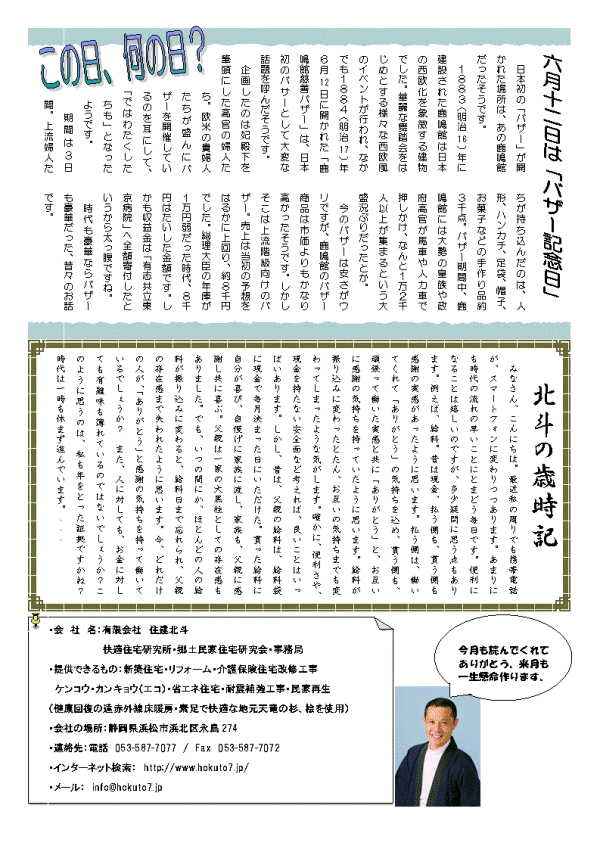 この日、何の日？
六月十二日は「バザー記念日」
日本初の「バザー」が開
かれた場所は、あの鹿鳴館
だったそうです。
1883（明治16）年に
建設された鹿鳴館は日本
の西欧化を象徴する建物
でした。華麗な舞踏会をは
じめとする様々な西欧風
のイベントが行われ、なか
でも1884（明治17）年
6月12日に開かれた「鹿
鳴館慈善バザー」は、日本
初のバザーとして大変な
話題を呼んだそうです。
企画したのは妃殿下を
筆頭にした高官の婦人た
ち。欧米の貴婦人
たちが盛んにバ
ザーを開催してい
るのを耳にして、
「ではわたくした
ちも」となった
ようです。
期間は3日
間。上流婦人た
ちが持ち込んだのは、人
形、ハンカチ、足袋、帽子、
お菓子などの手作り品約
3千点。バザー期間中、鹿
鳴館には大勢の皇族や政
府高官が馬車や人力車で
押しかけ、なんと1万2千
人以上が集まるという大
盛況ぶりだったとか。
今のバザーは安さがウ
リですが、鹿鳴館のバザー
商品は市価よりもかなり
高かったそうです。しかし
そこは上流階級向けのバ
ザー。売上は当初の予想を
はるかに上回り、約8千円
でした。総理大臣の年俸が
1万円弱だった時代、8千
円はたいした金額です。し
かも収益金は「有志共立東
京病院」へ全額寄付したと
いうから太っ腹ですね。
時代も豪華ならバザー
も豪華だった、昔々のお話
です。
北斗の歳時記
みなさん、こんにちは。最近私の周りでも携帯電話
が、スマートフォンに変わりつつあります。あまりに
も時代の流れの早いことにとまどう毎日です。便利に
なることは嬉しいのですが、多少疑問に思う点もあり
ます。例えば、給料。昔は現金、払う側も、貰う側も
感謝の実感があったように思います。払う側は、働い
てくれて「ありがとう」の気持ちを込め、貰う側も、
頑張って働いた実感と共に「ありがとう」と、お互い
に感謝の気持ちを持っていたように思います。給料が
振り込みに変わったとたん、お互いの気持ちまでも変
わってしまったような気がします。確かに、便利さや、
現金を持たない安全面など考えれば、良いことはいっ
ぱいあります。しかし、昔は、父親の給料は、給料袋
に現金で毎月決まった日にいただけた。貰った給料に
自分が喜び、自慢げに家族に渡し、家族も、父親に感
謝し共に喜ぶ。父親は一家の大黒柱としての存在感も
ありました。でも、いつの間にか、ほとんどの人の給
料が振り込みに変わると、給料日まで忘れられ、父親
の存在感まで失われたように思います。今、どれだけ
の人が、「ありがとう」と感謝の気持ちを持って働いて
いるでしょうか？ また、人に対しても、お金に対し
ても有難味も薄れているのではないでしょうか？こ
のように思うのは、私も年をとった証拠ですかね？
時代は一時も休まず進んでいます．．．．
・会 社 名：有限会社 住建北斗
快適住宅研究所・郷土民家住宅研究会・事務局
・提供できるもの：新築住宅・リフォーム・介護保険住宅改修工事
ケンコウ・カンキョウ（エコ）・省エネ住宅・耐震補強工事・民家再生
（健康回復の遠赤外線床暖房・素足で快適な地元天竜の杉、桧を使用）
・会社の場所：静岡県浜松市浜北区永島274
・連絡先：電話 053-587-7077 / Fax 053-587-7072
・インターネット検索： http://www.hokuto7.jp/
・メール： info@hokuto7.jp
今月も読んでくれて
ありがとう、来月も
一生懸命作ります。